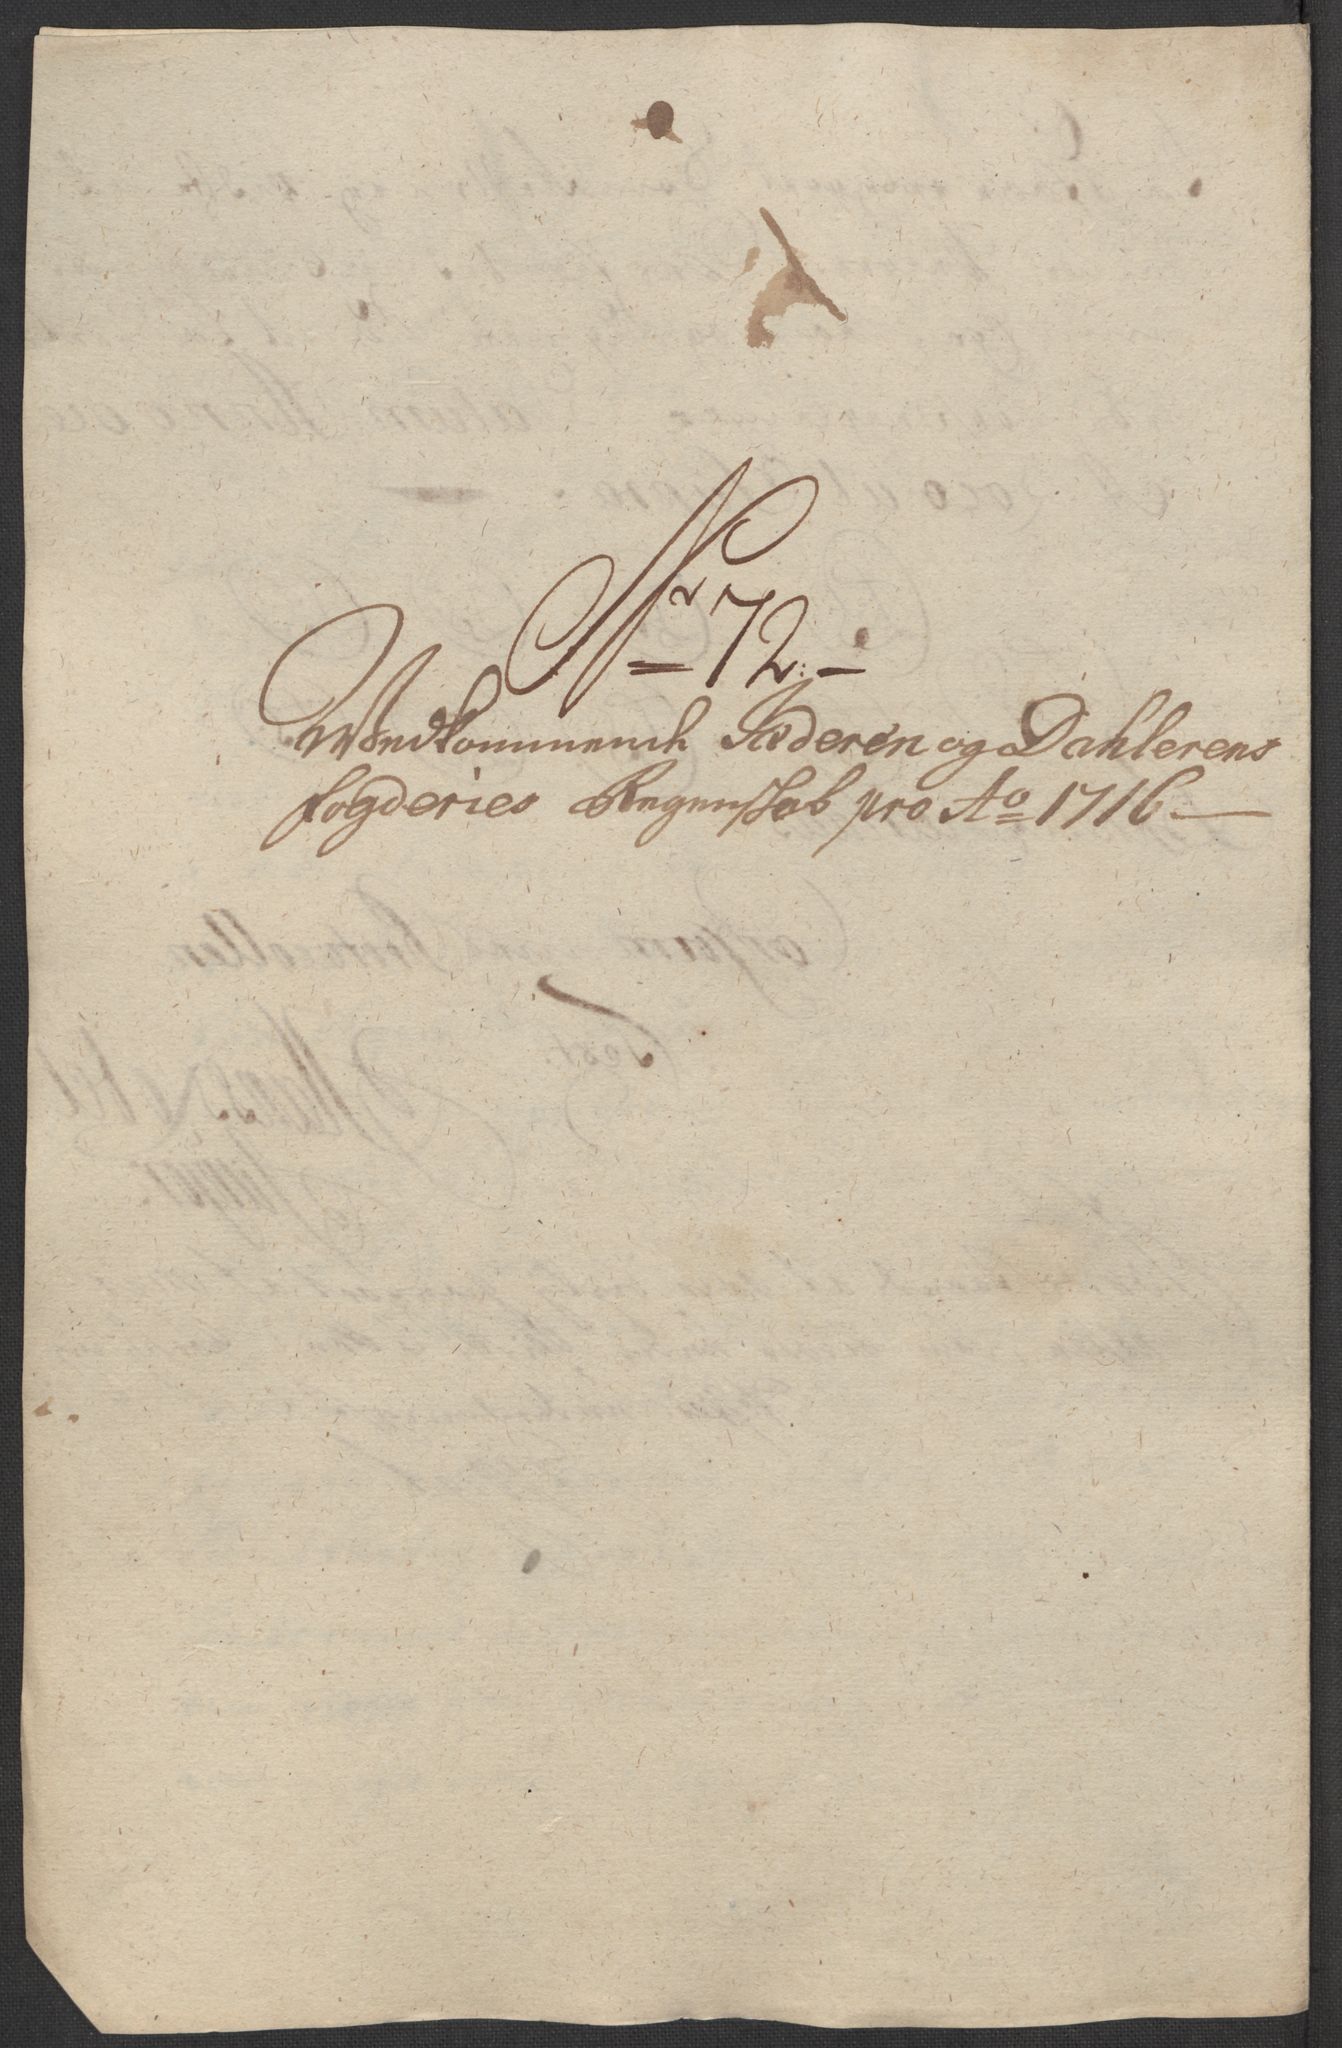 Nr 72.
Wedkommende Jæderen og Dahlerens
fogderies Regenskab pro Ao 1716